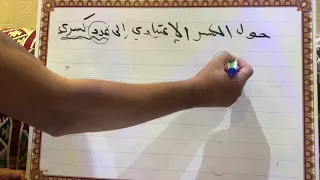 حول الكسر الإعتيادي إلى عدد كسري